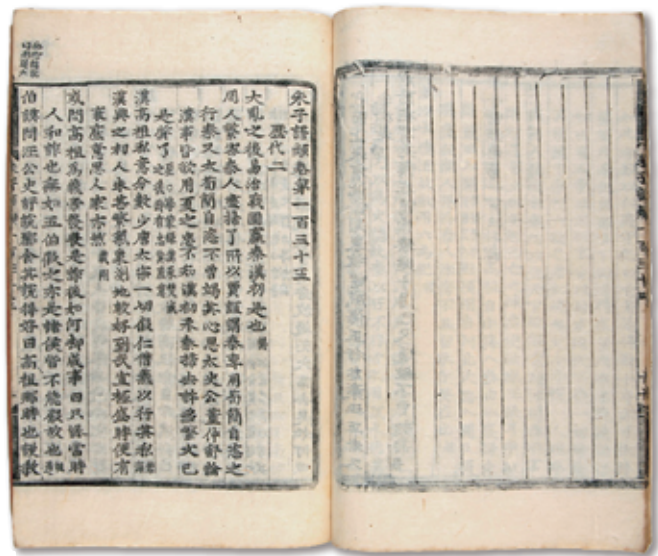 朱子語類卷第一百三十五
歷代二
大亂之後易治戰國嬴秦漢初是也
周人繁密秦人盡掃了所以賈誼謂秦專用苟簡自恣之
行秦又太苟簡自恣不曾竭其心思太史公董仲舒論
漢事皆欲用夏之忠不知漢初承秦掃去許多繁文已
是質了
漢高祖私意分數少唐太宗一切假仁借義以行其私
漢興之初人未甚繁氣象剗地較好到武宣極盛時便有
衰底意思人家亦然
或問高祖爲義帝發喪是詐後如何却成事曰只緣當時
人和詐也無如五伯假之亦是諸侯皆不能假故也
伯謨問汪公史評說酈食其說得好曰高祖那時也謾教